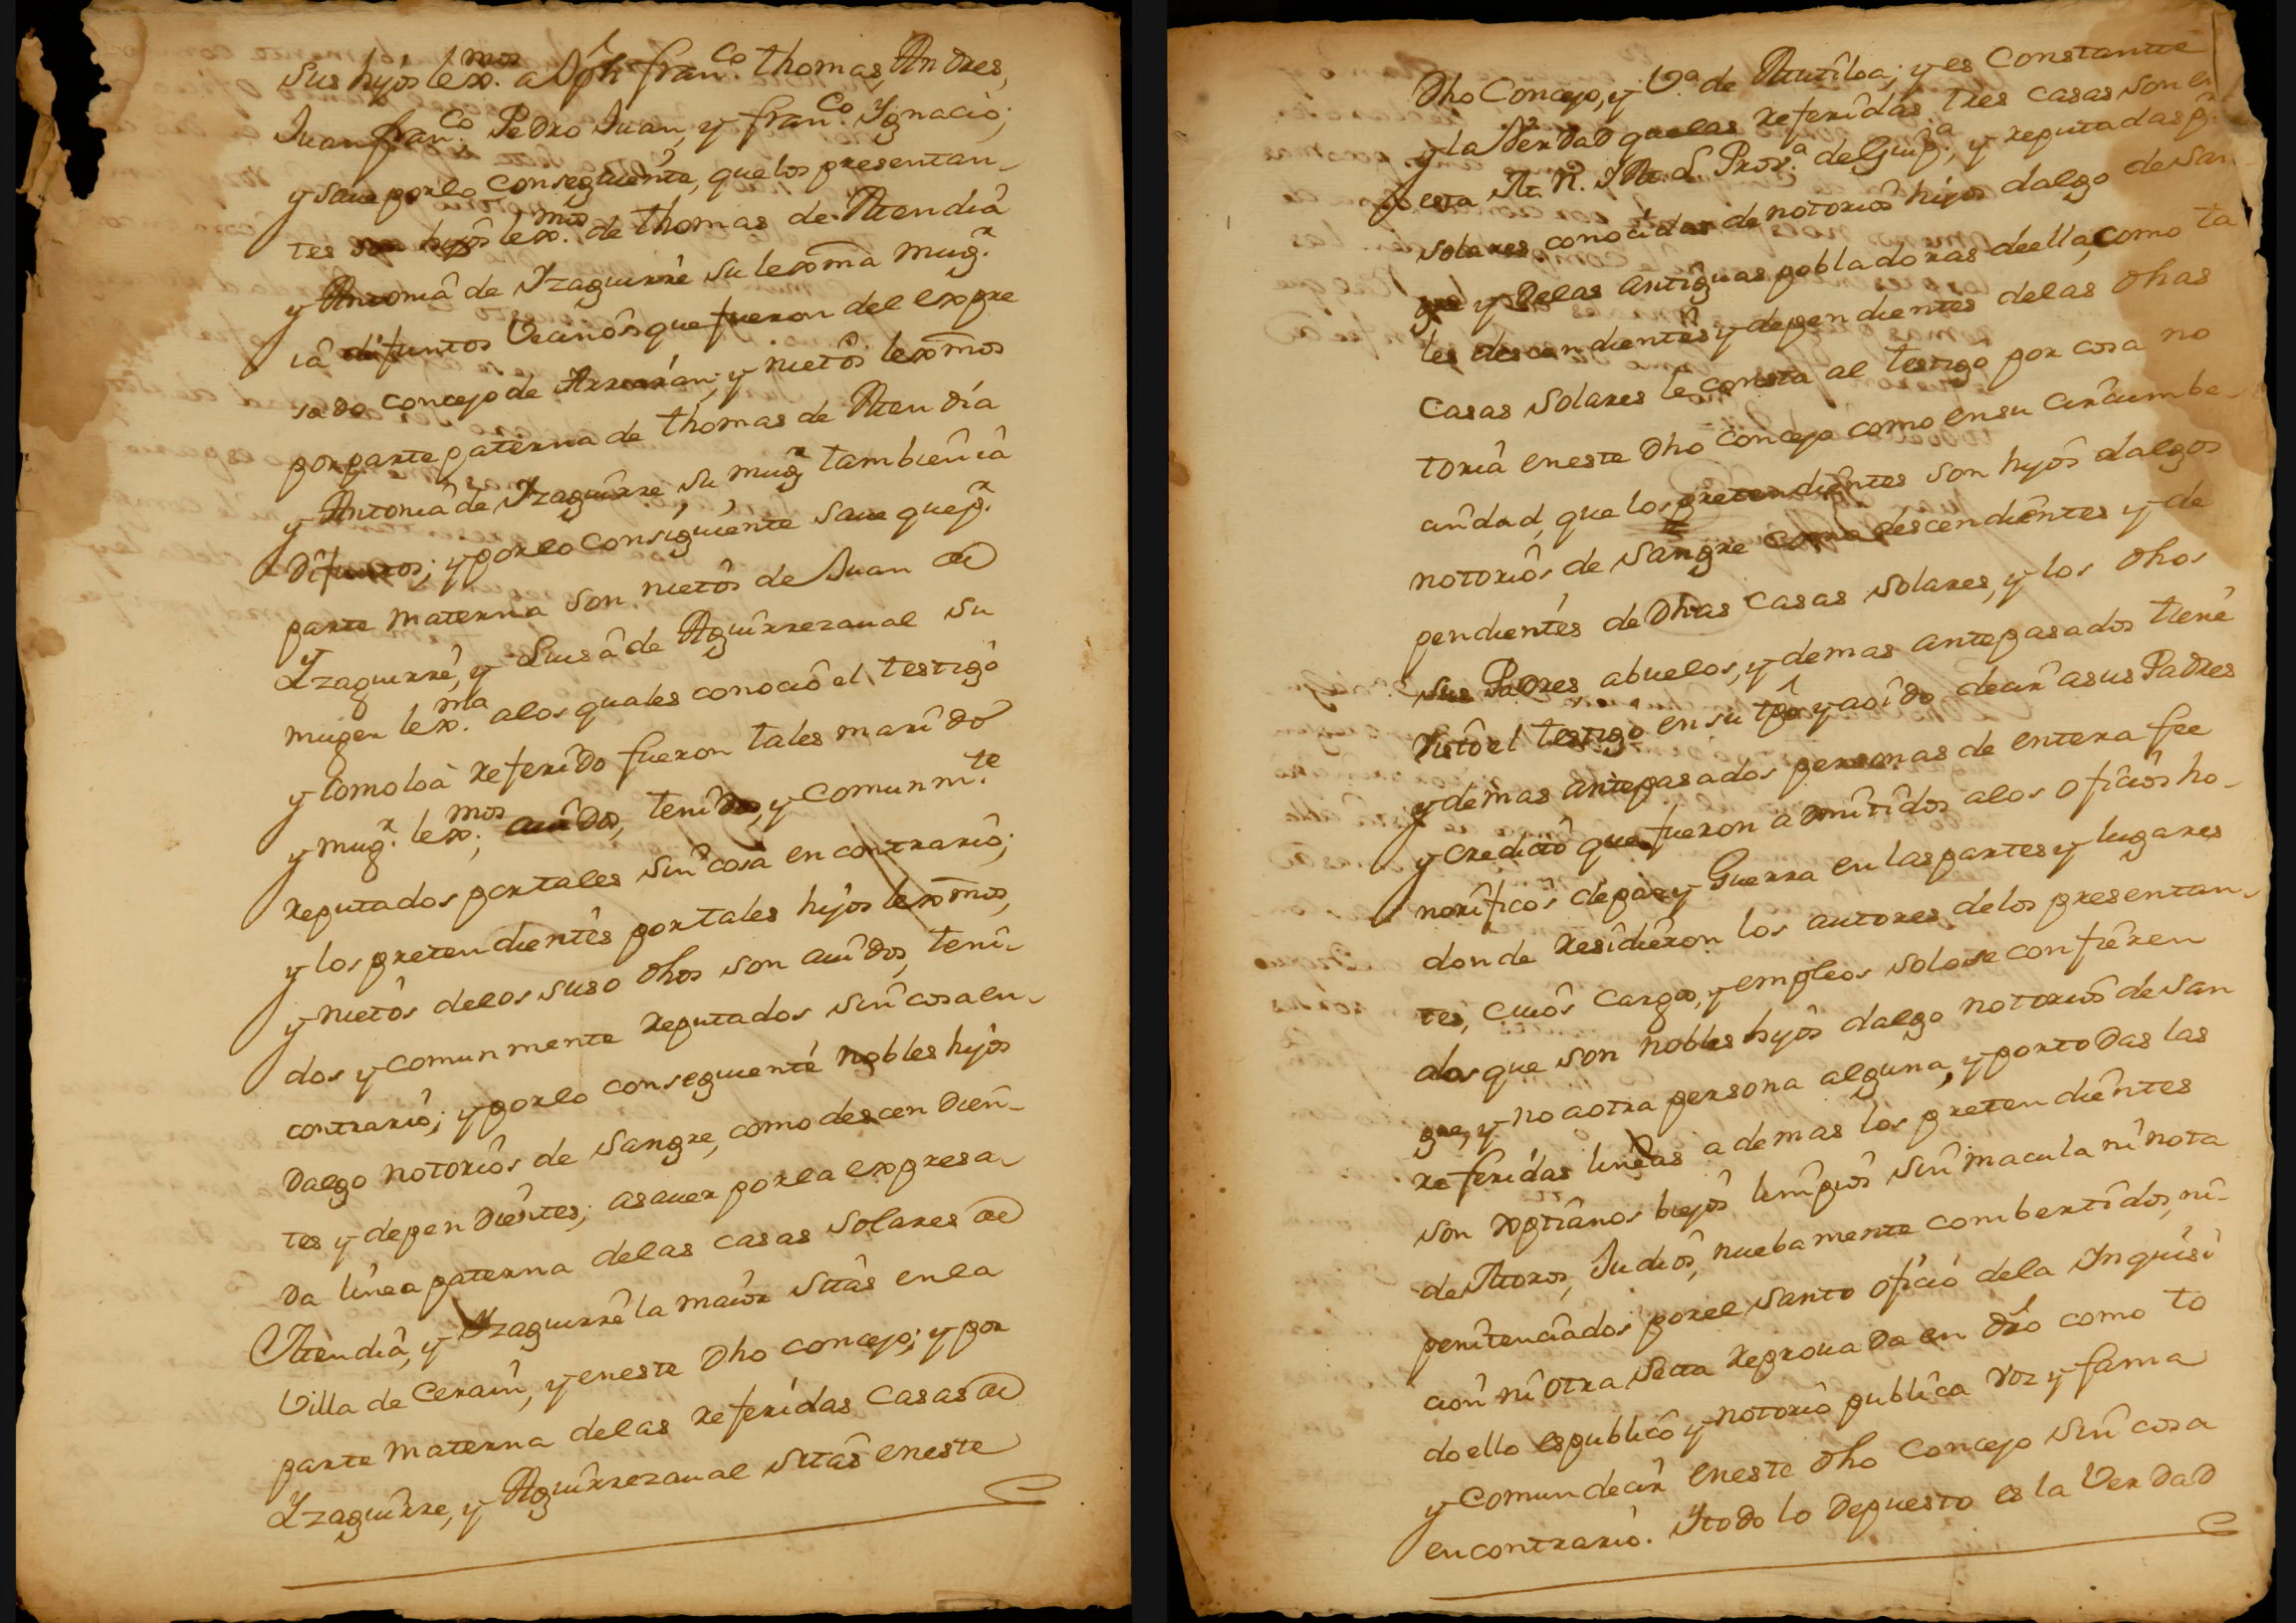 sus hijos lexmos. a Jph franco. thomas, Andres,
Juan franco. Pedro Juan, y franco. Ygnacio;
y saue por lo conseguiente, que los presentan-
tes son hijos lexmos. de thomas de Mendia
y Antonia de Yzaguirre su lexma mugr.
ia difuntos Vecinos que fueron del expre
sado concejo de Arriarán; y nietos lexmos
por parte paterna de thomas de Mendia
y Antonia de Yzaguirre, su mugr. tambien ia
Difuntos; y por lo consiguiente saue que pr.
parte materna son nietos de Juan de
Yzaguirre, y Luisa de Aguirrezaual su
muger lexma. a los quales conocio el testigo
y como los à referido fueron tales marido
y mugr. lexmos; auidos, tenidos, y comunmte.
reputados por tales sin cosa en contrario;
y los pretendientes por tales hijos lexmos,
y nietos de los suso dhos son auidos, teni-
dos y comunmente reputados sin cosa en-
contrario; y por lo conseguiente nobles hijos
dalgo notorios de sangre, como descendien-
tes y dependientes; asauer por la expresa-
da linea paterna de las casas solares de
Mendia, y Yzaguirre la maior sitas en la
Villa de Cerain, y en este dho concejo; y por
parte materna de las referidas casas de
Yzaguirre, y Aguirrezaual sitas en este
Dho Concejo, y Va. de Mutiloa; y es Constante
y la Verdad que las referidas tres casas son en
esta M. N. y M. L. Prova. de Guipa. y reputadas pr.
solares conocidas de notorios hijos dalgo de san-
gre y de las antiguas pobladoras de ella, como ta
les descendientes y dependientes de las dhas
casas solares le consta al testigo por cosa no
toria en este dho concejo como en su circumbe-
cindad, que los pretendientes son hijos dalgos
notorios de sangre como descendientes y de
pendientes de dhas casas solares, y los dhos
sus Padres, abuelos, y demas antepasados tiene
visto el testigo en su tpo y a oido decir a sus Padres
y demas antepasados personas de entera fee
y credito que fueron admitidos a los oficios ho-
norificos de paz y Guerra en las partes y lugares
donde residieron los autores de los presentan-
tes, cuios cargos, y empleos solo se confieren
a los que son nobles hijos dalgo notorios de san
gre, y no a otra persona alguna, y por todas las
referidas lineas ademas los pretendientes
son xptianos biejos limpios sin macula ni nota
de Moros, Judios, nuebamente combertidos, ni-
penitenciados por el santo oficio de la Inquisi
cion ni otra secta reprouada en dro como to
do ello es publico y notorio publica voz y fama
y comun decir en este dho concejo sin cosa
en contrario. Y todo lo depuesto es la Verdad